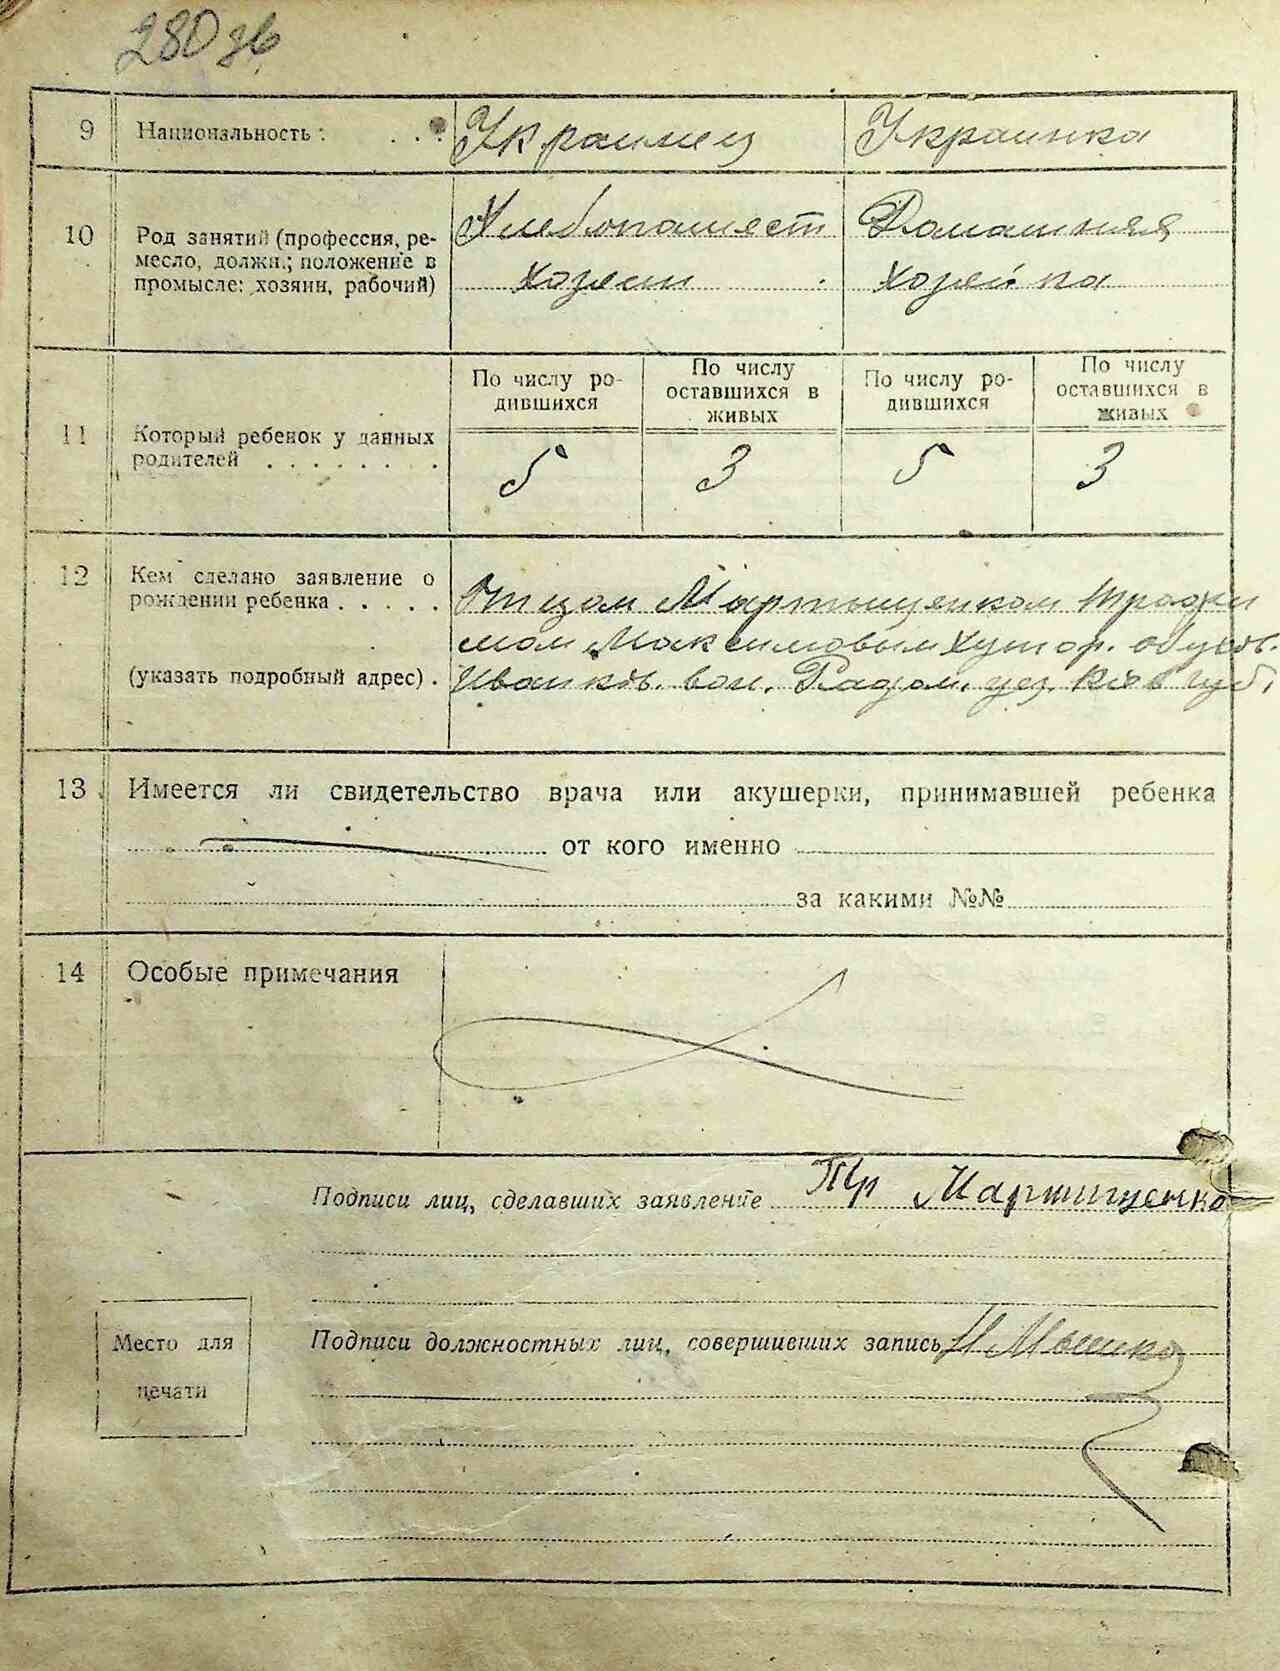 280 зв
9 Национальность: Украинец Украинка
10 Род занятий (профессия, ре-
месло, должн.; положение в
промысле: хозяин, рабочий)
Хлебопашест
хозяин
Домашняя
хозяйка
11 Который ребенок у данных
родителей
По числу ро-
дившихся
По числу
оставшихся в
живых
По числу ро-
дившихся
По числу
оставшихся в
живых
5 3 5 3
12 Кем сделано заявление о
рождении ребенка
(указать подробный адрес)
Отцом Мартыщенком Трофи
мом Максимовым хутор.
Иванков. вол. Радом. уез. Киев губ.
13 Имеется ли свидетельство врача или акушерки, принимавшей ребенка
от кого именно
за какими №№
14 Особые примечания
Подписи лиц, сделавших заявление Тр Мартищенко
Место для
печати
Подписи должностных лиц, совершивших запись